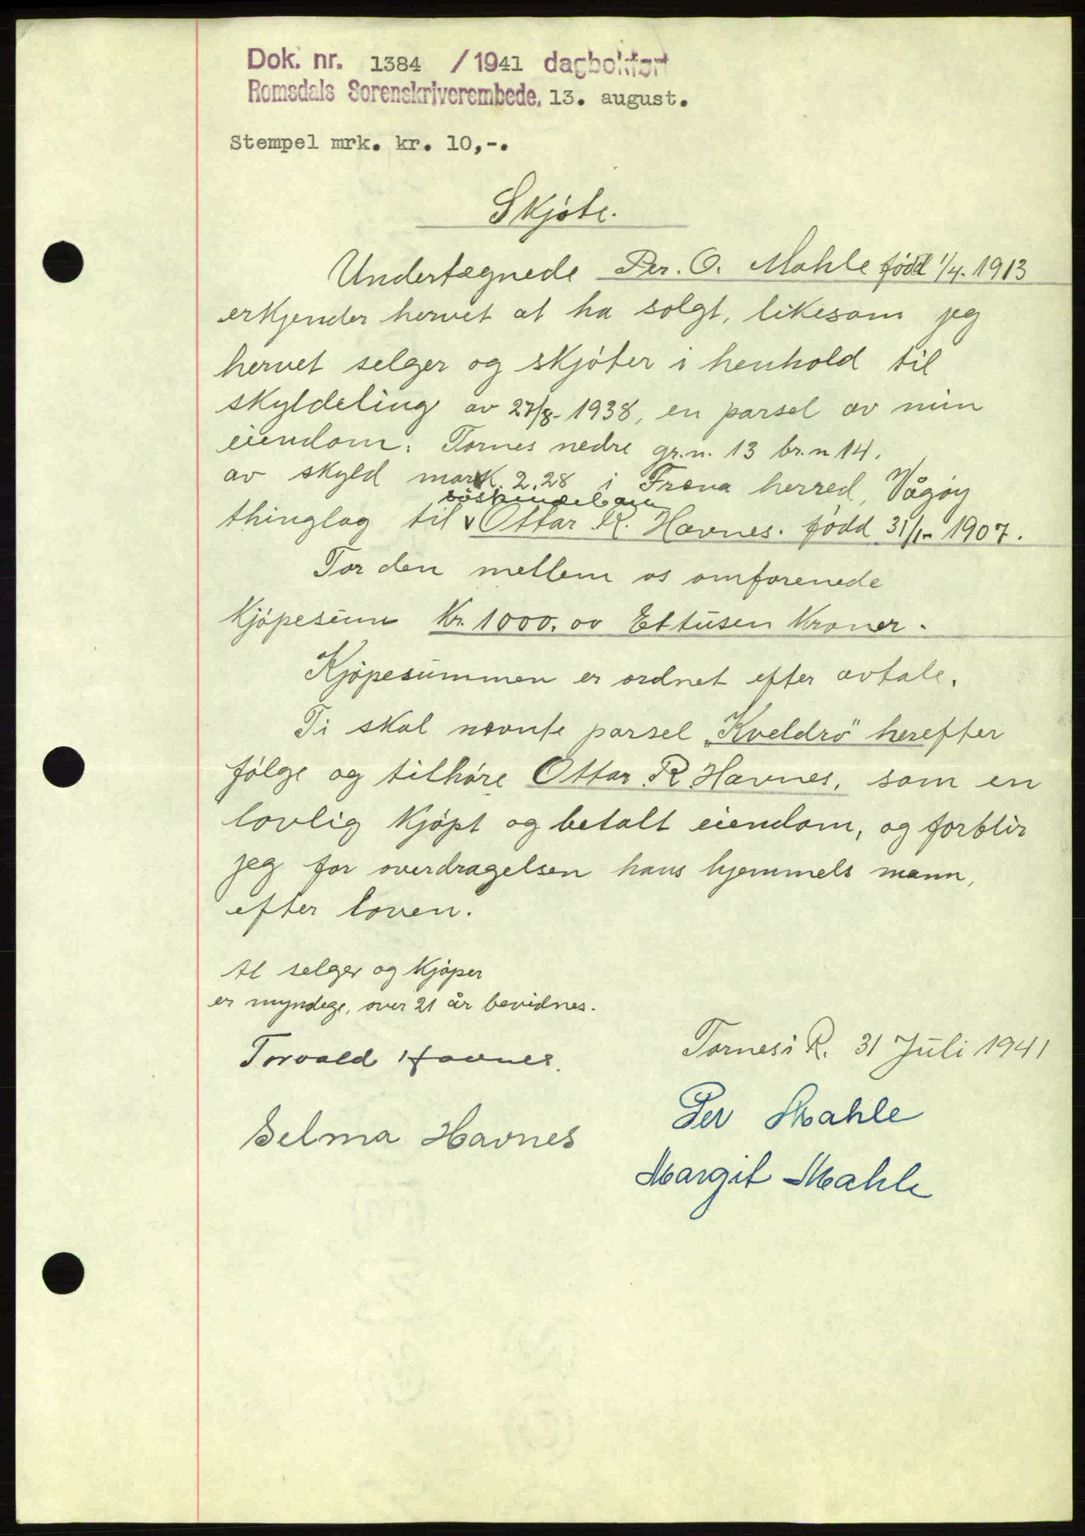 Dok. nr. 1384 / 1941 dagbokført
Romsdals Sorenskriverembede, 13. august.
Stempel mrk. kr. 10,-.
Skjøte.
Undertegnede Per. O. Mahle född 1/4. 1913
erkjender hervet at ha solgt, likesom jeg
hervet selger og skjøter i henhold til
skyldeling av 27/8- 1938, en parsel av min
eiendom: Tornes nedre gr.n. 13 br.n 14.
av skyld mark. 2.28 i Fræna herred, Vågøy
söskendebarn
thinglag til v Ottar R. Havnes. född 31/1- 1907.
For den mellem os omforenede
Kjøpesum Kr. 1000.00 Ettusen Kroner.
Kjøpesummen er ordnet efter avtale.
Ti skal nævnte parsel „Kveldro" herefter
følge og tilhøre Ottar R. Havnes, som en
lovlig kjøpt og betalt eiendom, og forblir
jeg for overdragelsen hans hjemmels mann,
efter loven.
At selger og kjøper
er myndege, over 21 år bevidnes.
Torvald Havnes.
Selma Havnes
Tornes i R. 31 Juli 1941
Per Mahle
Margit Mahle